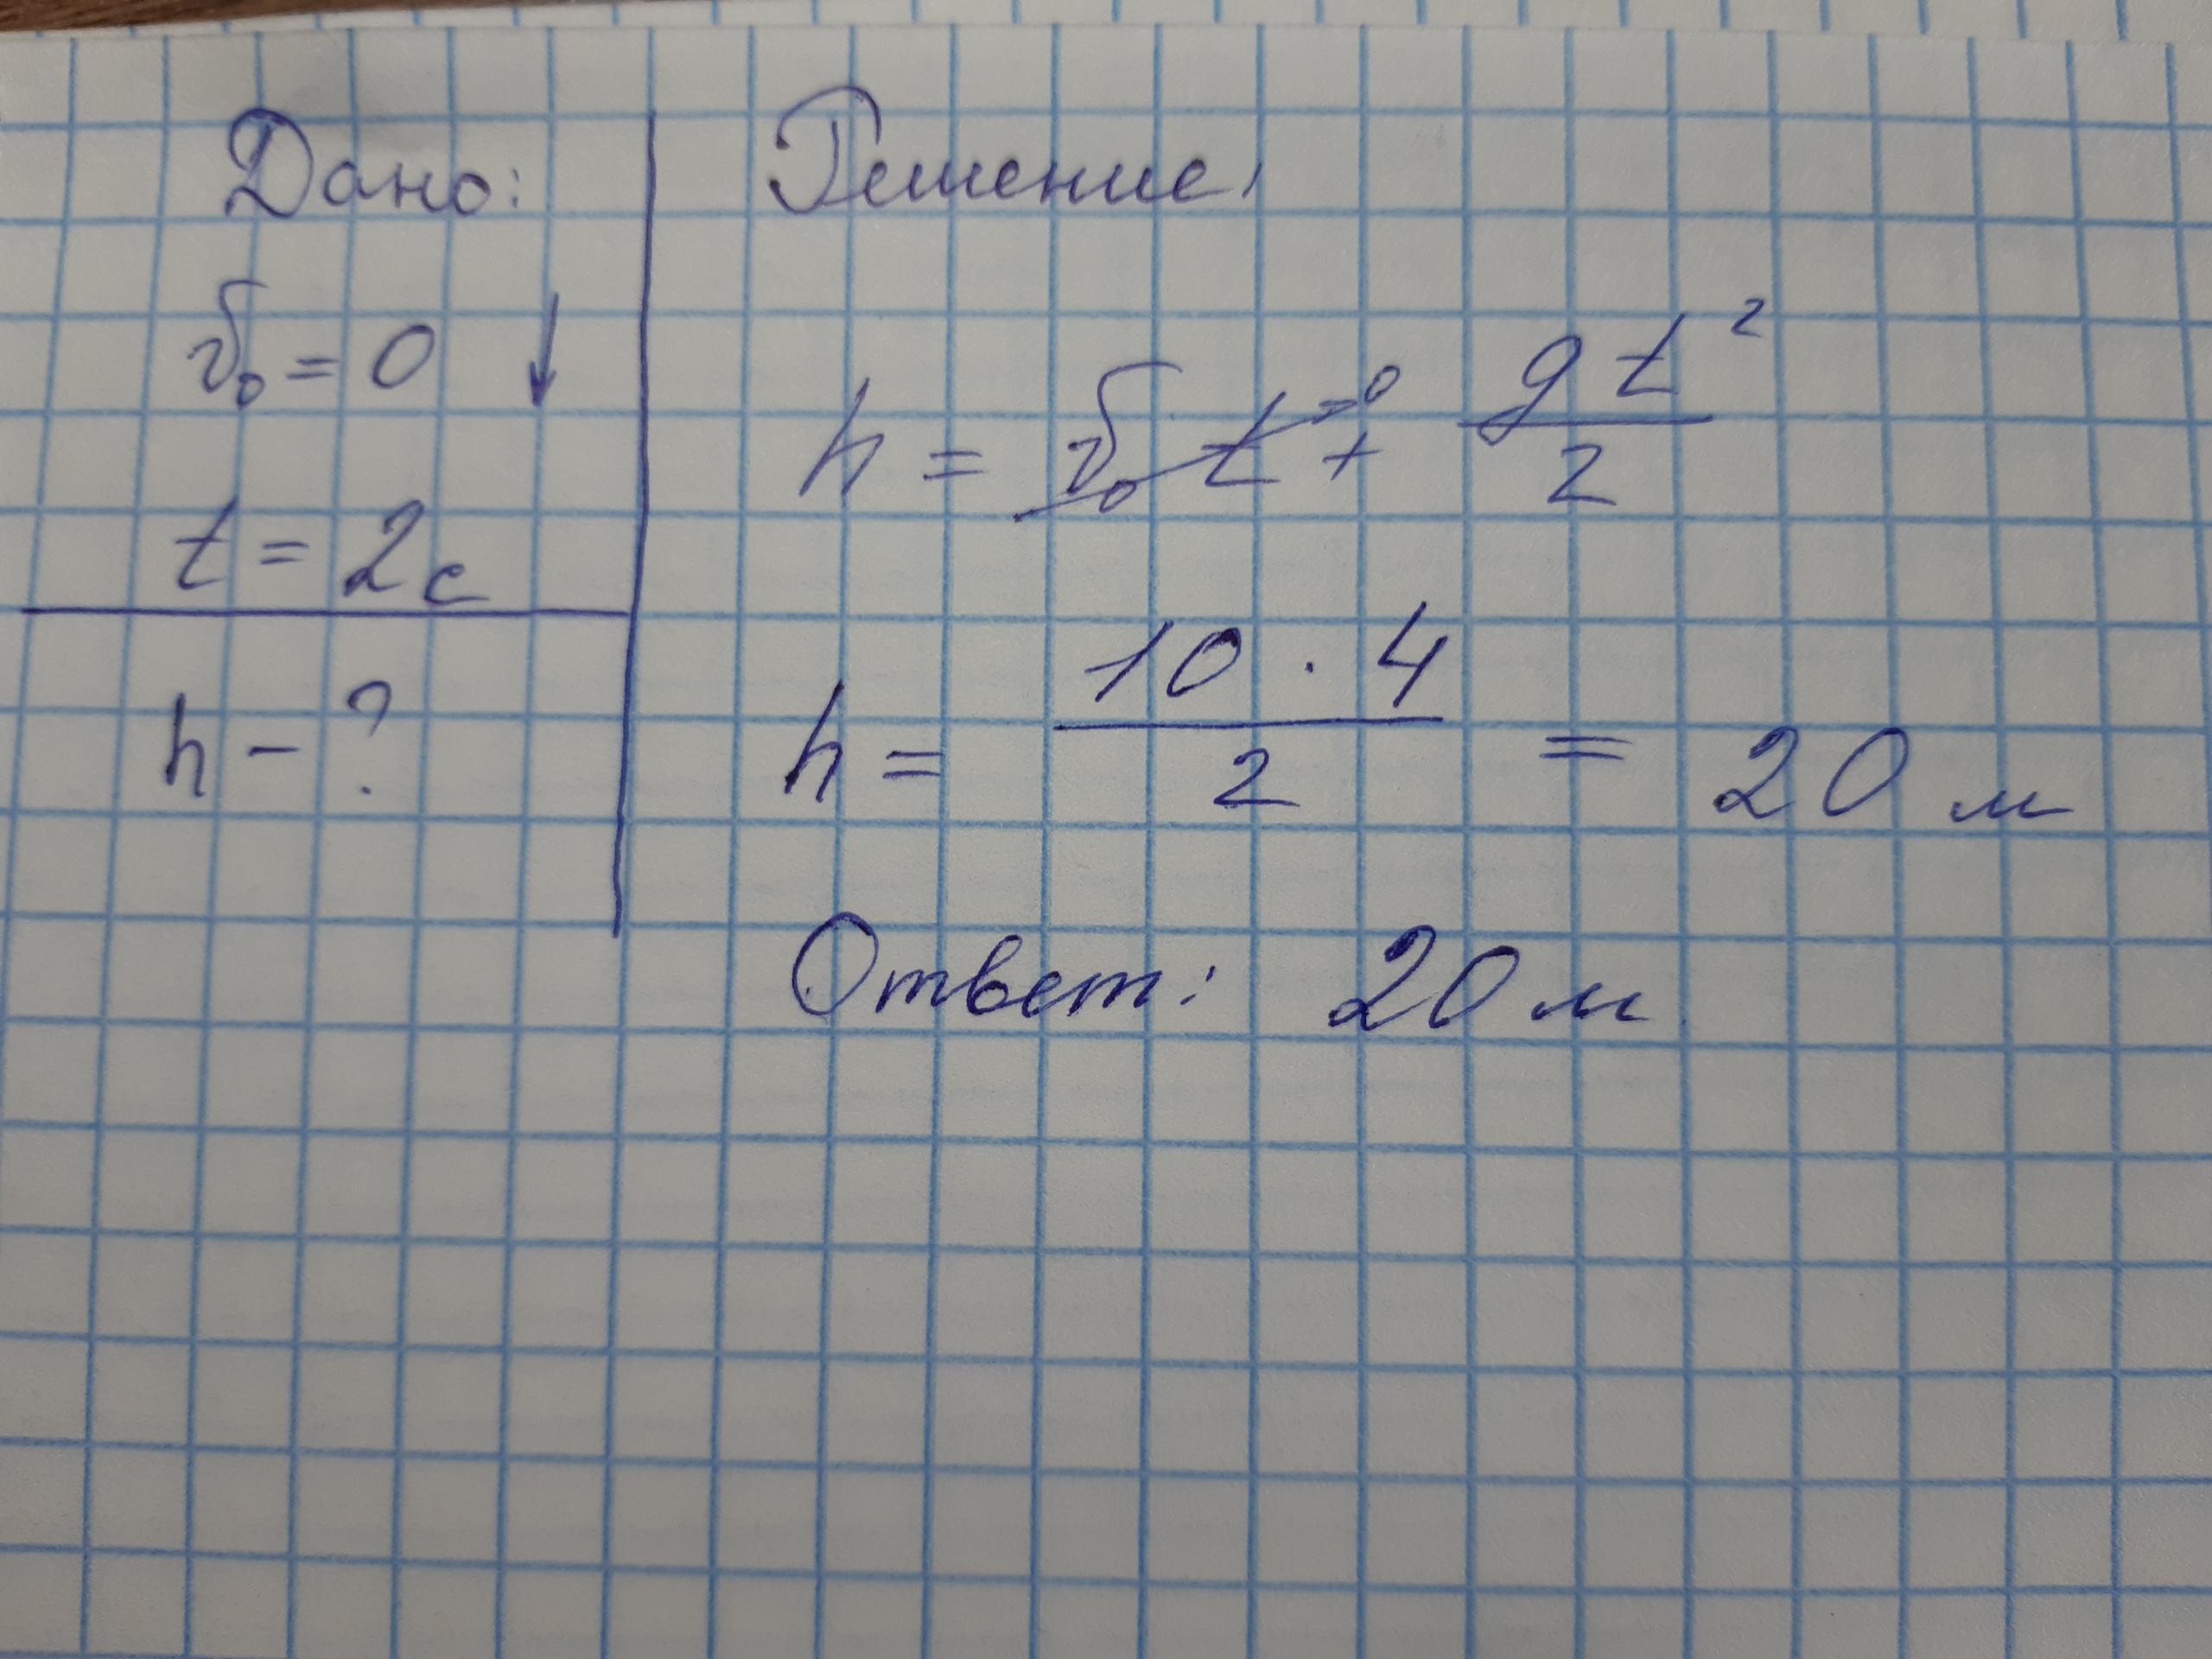 Дано:
v₀ = 0 ↓
t = 2с
h - ?
Решение:
h = v₀t→0 + gt²/2
h = 10 · 4 / 2 = 20 м
Ответ: 20 м.